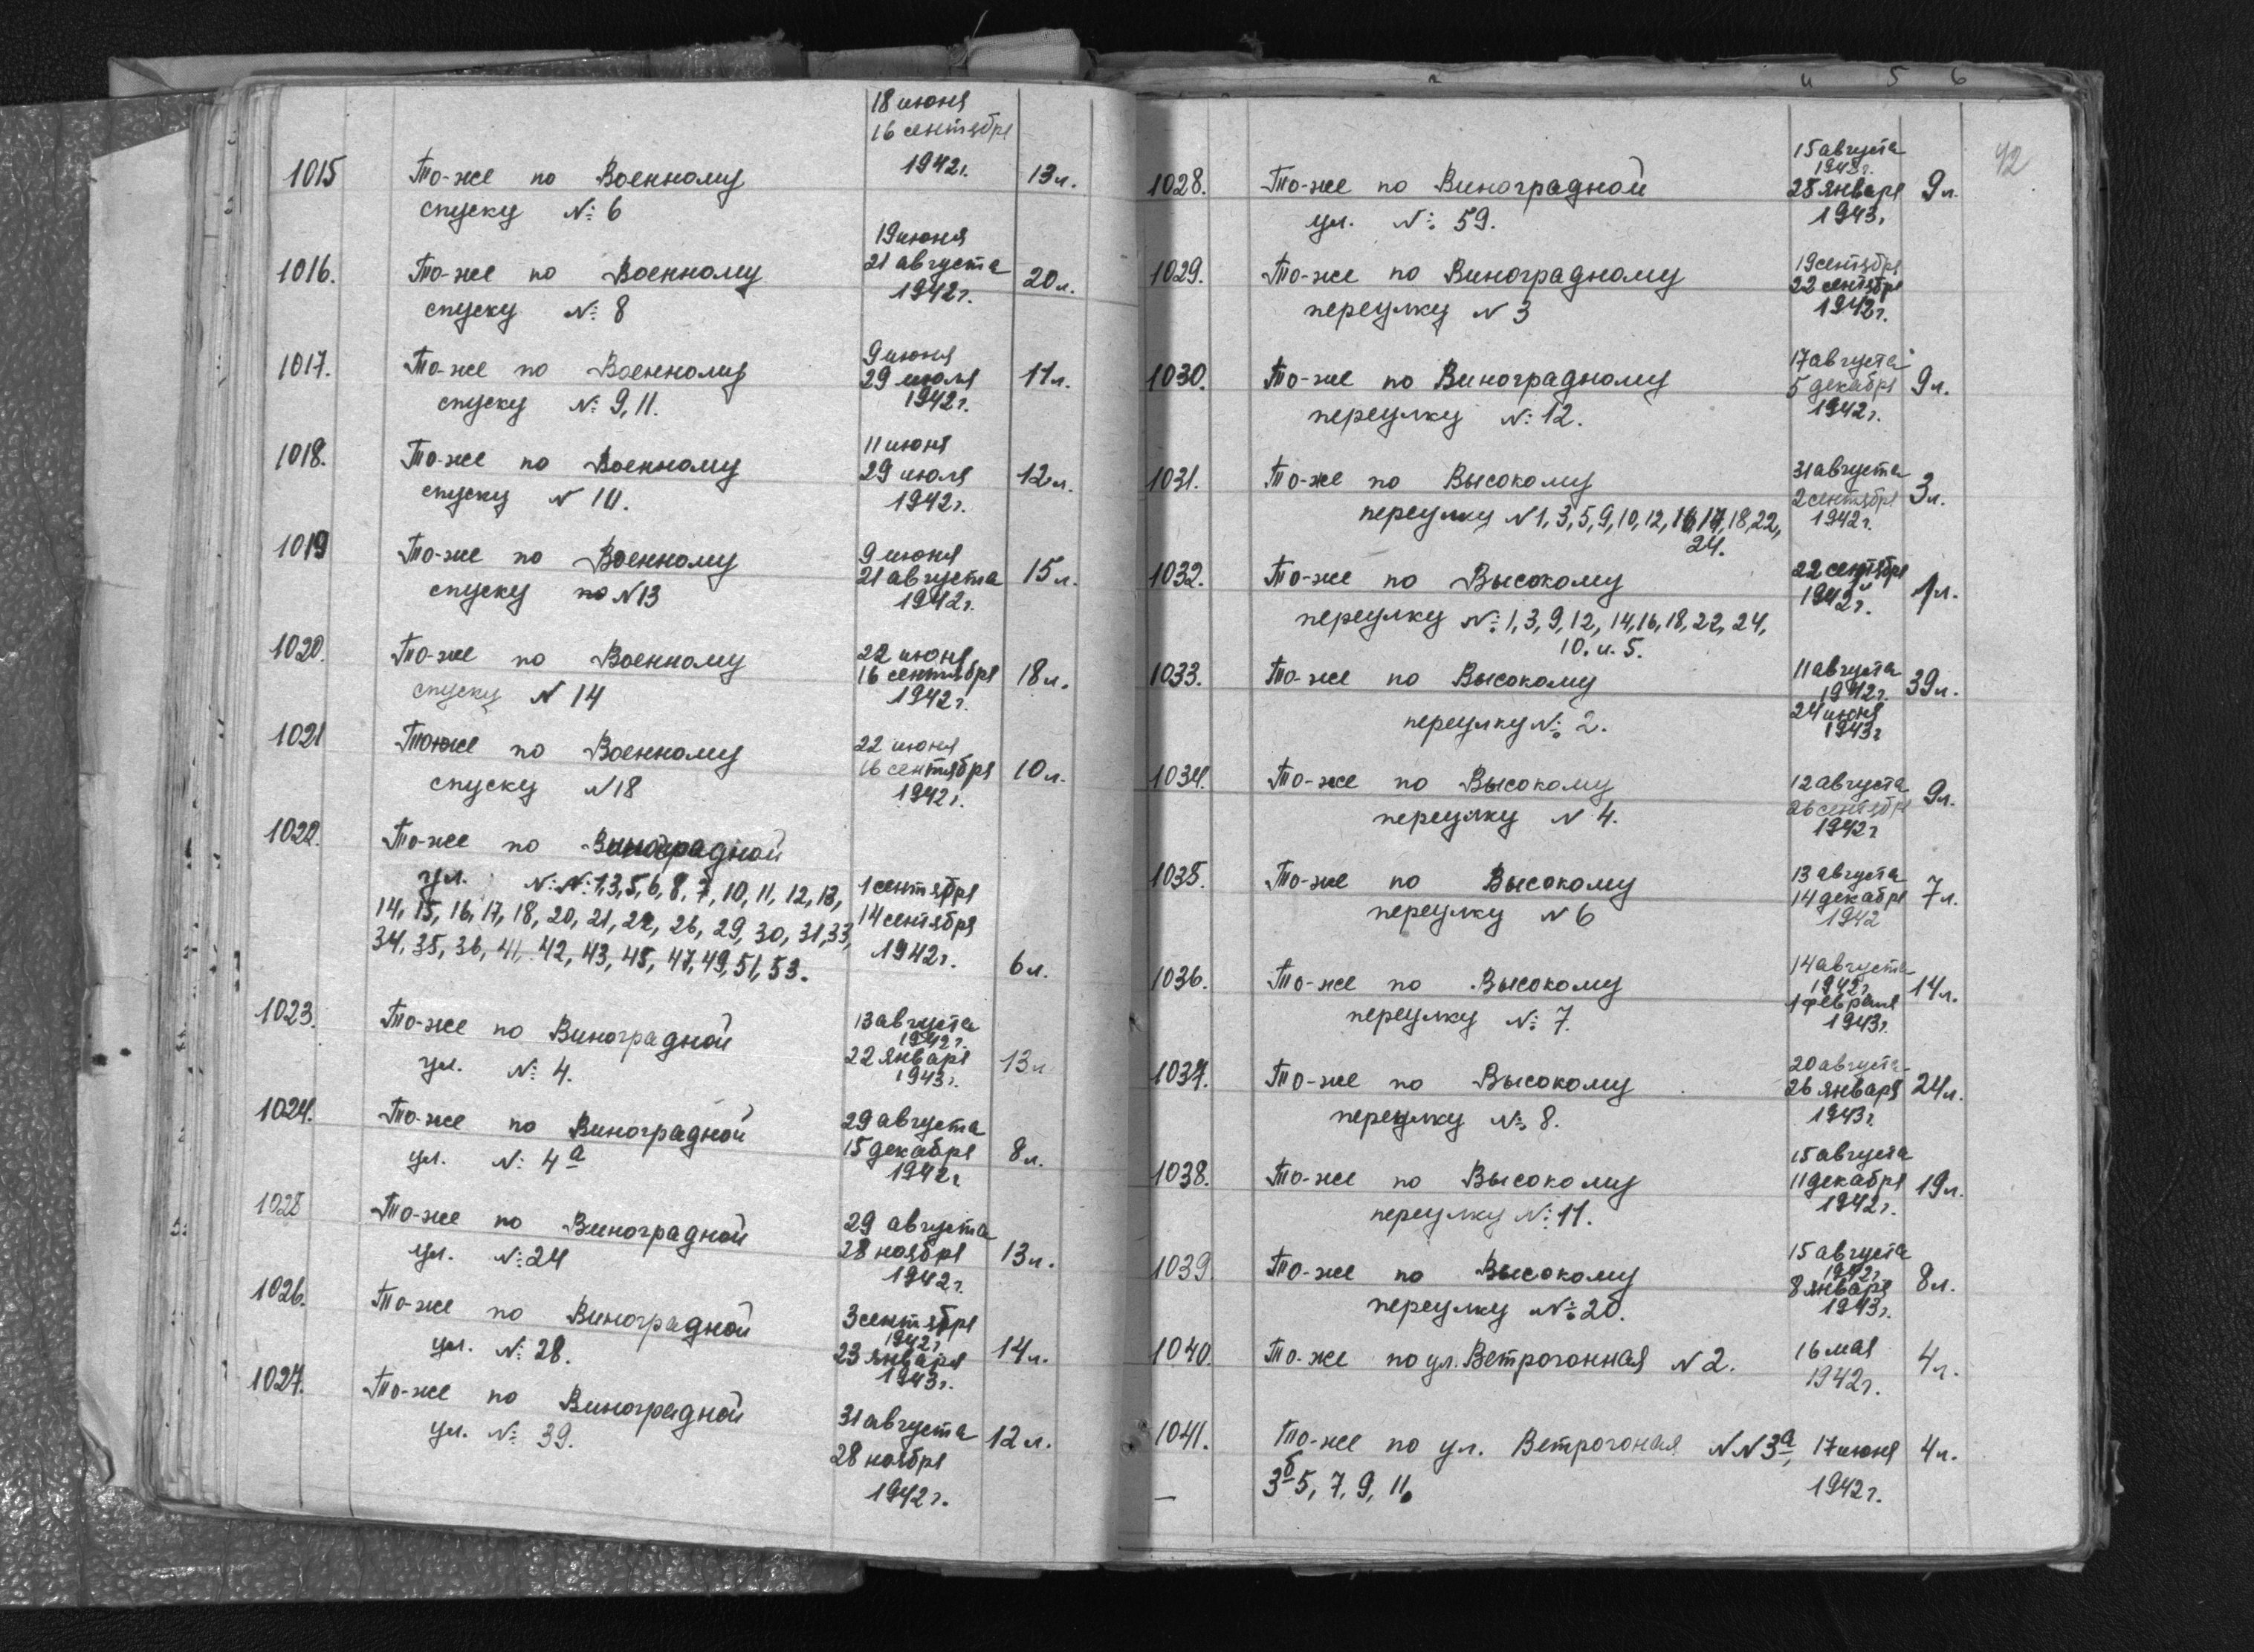 18 июня
16 сентября
1015 То-же по Военному 1942г. 13л.
спуску №: 6
19 июня
1016. То-же по Военному 21 августа 20л.
спуску №: 8 1942г.
1017. То-же по Военному 9 июня
29 июля 11л.
спуску №: 9, 11. 1942г.
1018. То-же по Военному 11 июня
29 июля 12л.
спуску N 10. 1942г.
1019 То-же по Военному 9 июня
21 августа 15л.
спуску по N13 1942г.
1020. То-же по Военному 22 июня
16 сентября 18л.
спуску N 14 1942г.
1021 То-же по Военному 22 июня
16 сентября 10л.
спуску N18 1942г.
1022. То-же по Виноградной
ул. №:№: 1,3,5,6,8,7,10,11,12,13, 1 сентября
14, 15, 16, 17, 18, 20, 21, 22, 26, 29, 30, 31,33, 14 сентября
34, 35, 36, 41, 42, 43, 45, 47, 49, 51, 53. 1942г. 6л.
1023. То-же по Виноградной 13 августа
1942г.
ул. №: 4. 22 января 13л
1943г.
1024. То-же по Виноградной 29 августа
ул. №: 4а 15 декабря 8л.
1942г
1025 То-же по Виноградной 29 августа
ул. №: 24 28 ноября 13л.
1942г.
1026. То-же по Виноградной 3 сентября
1942г
ул. №: 28. 23 января 14л.
1943г.
1027. То-же по Виноградной 31 августа 12л.
ул. №: 39. 28 ноября
1942г.
и 5 6
42
15 августа
1942г.
1028. То-же по Виноградной 25 января 9л.
ул. №: 59. 1943г
1029. То-же по Виноградному 19 сентября
22 сентября
переулку N 3 1942г.
1030. То-же по Виноградному 17 августа
5 декабря 9л.
переулку №: 12. 1942г.
1031. То-же по Высокому 31 августа
2 сентября 3л.
переулку N1, 3, 5, 9, 10, 12, 16, 14, 18, 22, 1942г
24.
1032. То-же по Высокому 22 сентября
1942г. 1л.
переулку №: 1, 3, 9, 12, 14, 16, 18, 22, 24,
10. и. 5.
1033. То-же по Высокому 11 августа
1942г. 39л.
переулку №: 2. 24 июня
1943г
1034. То-же по Высокому 12 августа
26 сентября 9л.
переулку N 4. 1942г
1035. То-же по Высокому 13 августа
14 декабря 7л.
переулку N 6 1942
1036. То-же по Высокому 14 августа
1942г 14л.
переулку №: 7. 1 февраля
1943г.
1037. То-же по Высокому 20 августа
26 января 24л.
переулку №: 8. 1943г
1038. То-же по Высокому 15 августа
11 декабря 19л.
переулку №: 11. 1942г.
1039. То-же по Высокому 15 августа
1942г
8 января 8л.
переулку №: 20. 1943г.
1040. То-же по ул. Ветрогонная N 2. 16 мая 4л.
1942г.
1041. То-же по ул. Ветрогоная NN 3а, 17 июня 4л.
3б 5, 7, 9, 11. 1942г.